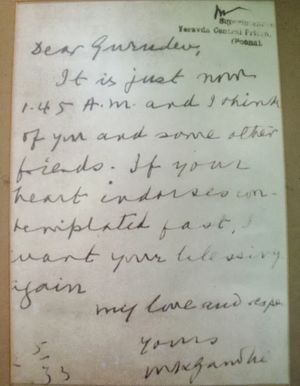 Superintendent
Yeravda Central Prison,
(Poona)
Dear Gurudev,
It is just now
1.45 A.M. and I think
of you and some other
friends. If your
heart indorses con-
templated fast, I
want your blessing
again
my love and respe
yours
MKGandhi
5
33